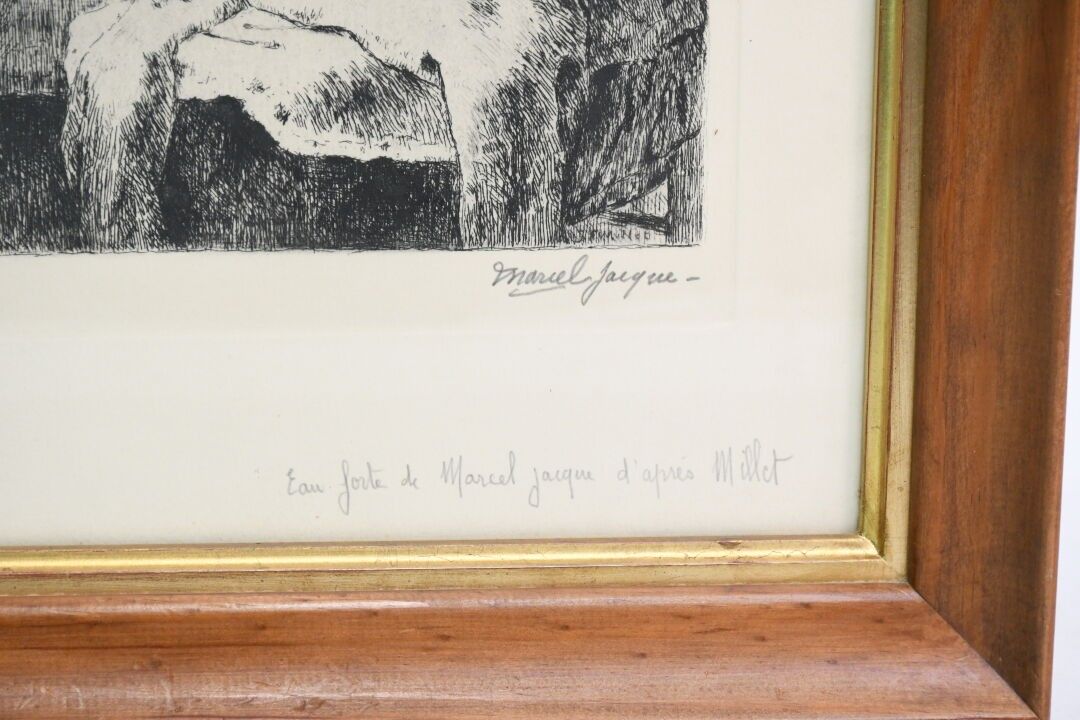 Marcel Jacque -
Eau forte de Marcel Jacque d'après Millet